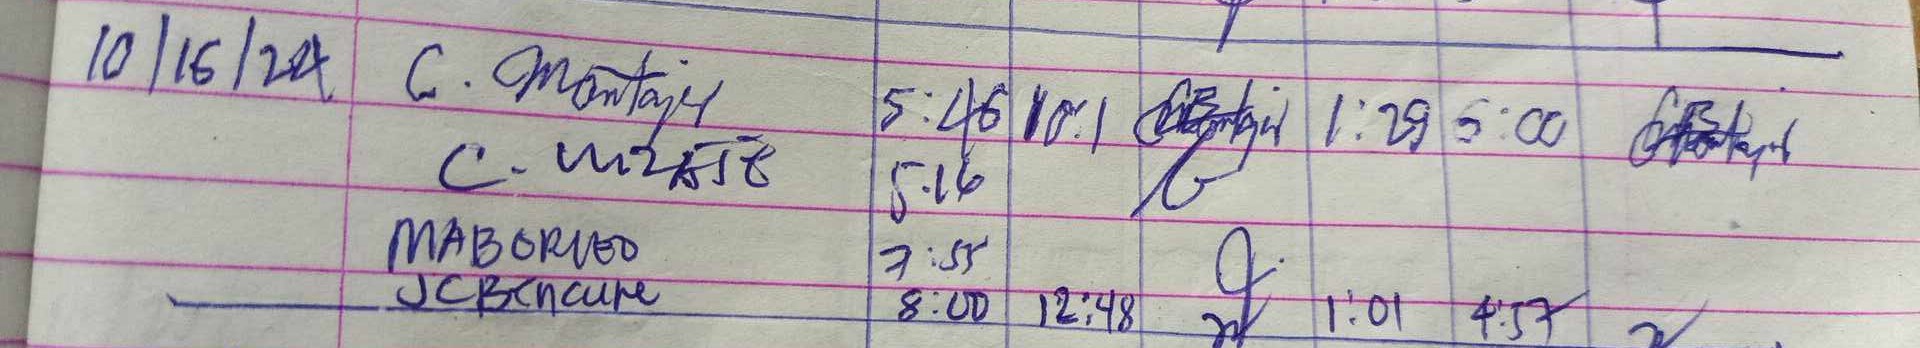 10/16/24 C. Montajes 5:46 10:1 1:29 5:00
C. 5:16
MABORNEO 7:55
JCBencure 8:00 12:48 1:01 4:57